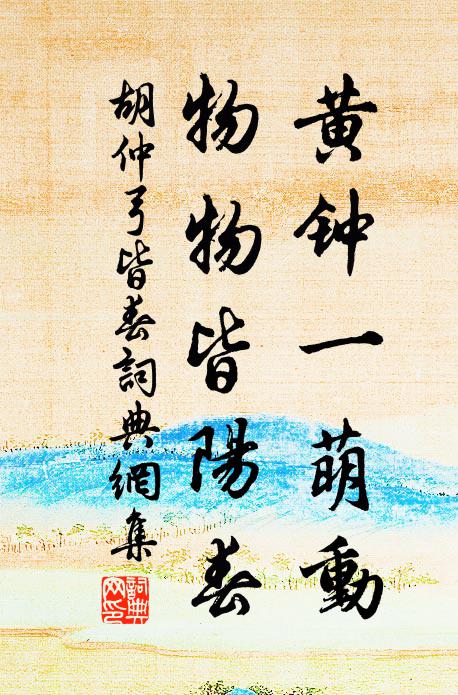 黄钟一萌動
物物皆陽春
胡仲弓皆春詞典網集
詞典